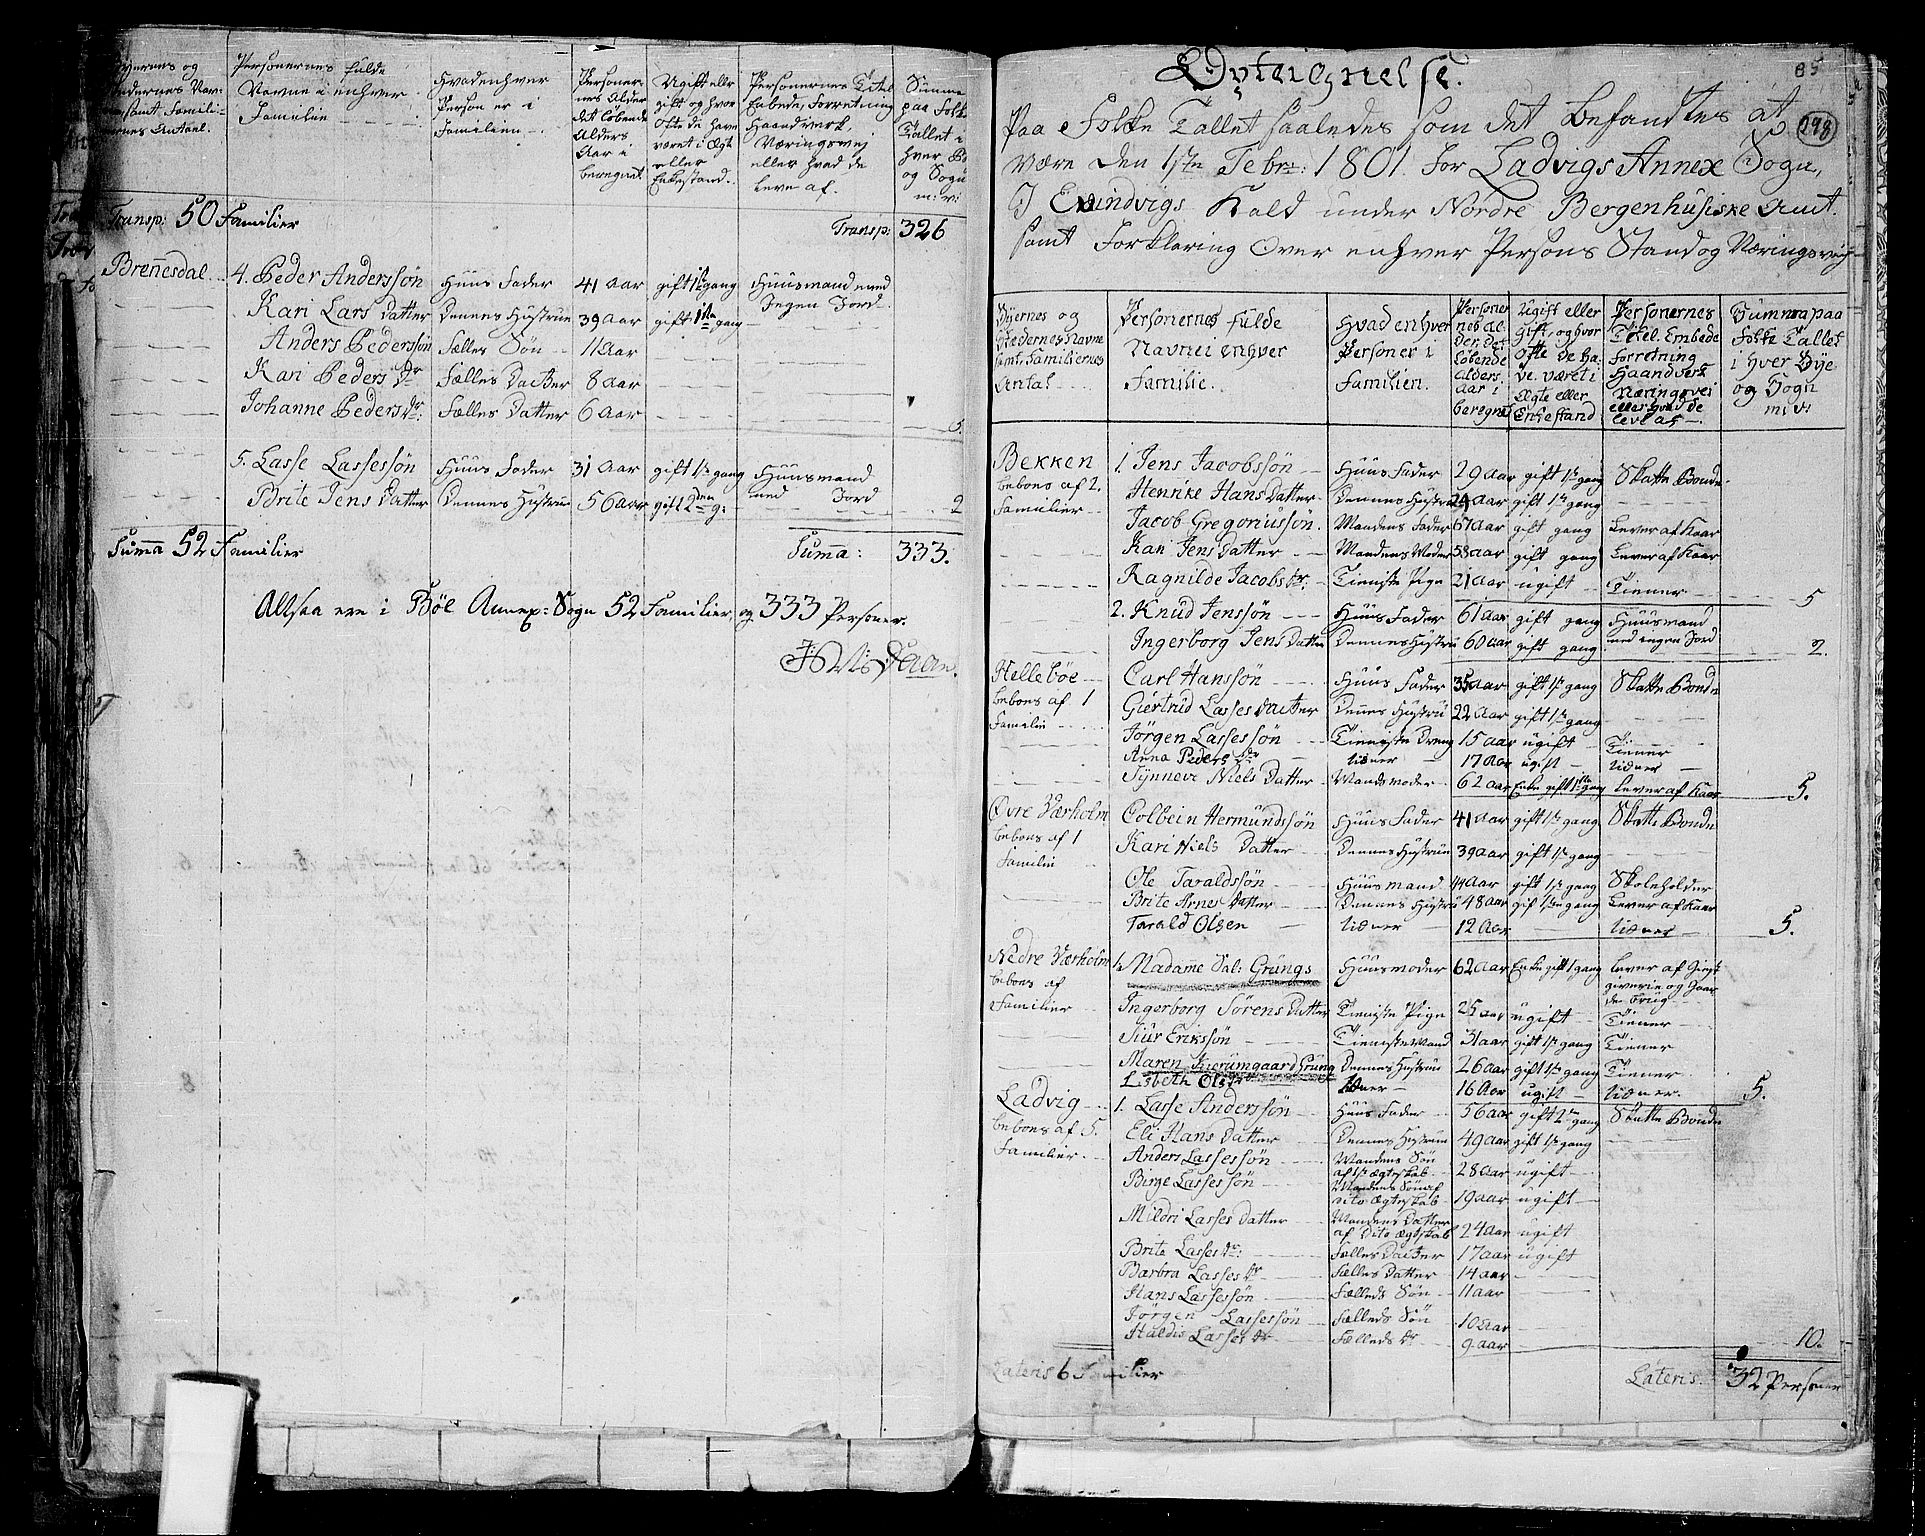 Personernes fulde
Navne i enhver
Familie
Hvad enhver
Person er i
Familien
Personer-
nes Alder
det løbende
Alders
Aar i-
beregnet
Ugift eller
gift og hvor
ofte de have
været i Ægte
eller
Enkestand.
Personernes Titel
Embede, Forretning
Haandverk,
Næringsvej
eller hvad de
leve af.
Transp: 50 Familier Transp: 326
Brennesdal 4. Peder Anderssøn Huus Fader 41 Aar gift 1ste gang Huusmand med
Kari Lars Datter Dennes Hustrue 39 Aar gift 1ste gang Ingen Jord
Anders Pederssøn Fælles Søn 11 Aar
Kari Peders Dr Fælles Datter 8 Aar
Johanne Peders Dr. Fælles Datter 6 Aar 5.
5. Lasse Lassessøn Huus Fader 31 Aar gift 1ste gang Huusmand
Brite Jens Datter Dennes Hustrue 56 Aar gift 2den g: med Jord 2
Suma 52 Familier Suma: 333.
Altsaa ere i Bøe Annex: Sogn 52 Familier, og 333 Personer.
85
298
Paa Folke Tallet saaledes som det befandtes at
være den 1ste Febr: 1801 for Ladvigs Annex Sogn,
I Evindvigs Kald under Nordre Bergenhusiske Amt.
samt Forklaring over enhver Persons Stand og Næringsvej
Byernes og
Stedernes Navne
samt Familiernes
Antal
Personernes Fulde
Navne i enhver
Familie.
Hvad enhver
Person er i
Familien.
Personer
nes Al-
der, det
løbende
Alders
aar i
beregnet
Ugift eller
gift, og hvor
ofte de ha-
ve været i
Ægte eller
Enkestand
Personernes
Titel, Embede
forretning
Haandverk
Næringsvei
eller hvad de
leve af
Summa paa
Folke Tallet
i hver Bye
og Sogn
Bekken 1. Jens Jacobssøn Huus Fader 29 Aar gift 1ste gang Skatte Bonde
beboes af 2. Henrike Hans Datter Dennes Hustrue 24 Aar gift 1ste gang
Familier Jacob Gregoriussøn. Mandens Fader 67 Aar gift gang Lever af Kaar
Kari Jens Datter Mandens Moder 58 Aar gift gang Lever af Kaar
Ragnilde Jacobs Dr: Tieniste Pige 21 Aar ugift Tiener 5
2. Knud Jenssøn Huus Fader 61 Aar gift gang Huusmand
Ingerborg Jens Datter Dennes Hustru 60 Aar gift gang med ingen Jord 2.
Hellebøe Carl Hanssøn Huus Fader 35 Aar gift 1ste gang Skatte Bonde
bebos af 1 Giertrud Lasses Datter Dennes Hustrü 22 Aar gift 1ste gang
Familie Jørgen Lassessøn Tieniste Dreng 15 Aar ugift Tiener
Anna Peders Dr tiener 17 Aar ugift tiener
Synneve Niels Datter Mands moder 62 Aar Enke gift 1ste gang Lever af Kaar 5.
Øvre Værholm Colbein Hermundssøn Huus Fader 41 Aar gift 1ste gang Skatte Bonde
bebos af 1 Kari Niels Datter Dennes Hustrue 39 Aar gift 1ste gang
Familie Ole Taraldssøn Huusmand 44 Aar gift 1ste gang Skoleholder
Brite Arnes Datter Dennes Hustrü 48 Aar gift 1ste gang Lever af Kaar
Tarald Olsen tiener 12 Aar tiener 5.
Nedre Værholm Madame Sal: Grüngs Huusmoder 62 Aar Enke gift 1 gang lever af Giest
bebos af giverie og Gaar
Familier de brug
Ingerborg Sørens Datter Tieniste Pige 25 aar ugift Tiener
Siur Erikssøn Tieniste Mand 31 Aar gift 1ste gang Tiener
Maren Grüng Dennes Hustrue 26 Aar gift 1ste gang Tiener
Lisbeth tiener 16 Aar ugift tiener. 5.
Ladvig 1. Lasse Anderssøn Huus Fader 56 aar gift 2den gang Skatte Bonde
bebos af 5. Eli Hans Datter Dennes Hustrue 49 aar gift 1ste gang
Familier. Anders Lassessøn Mandens Søn
af 1ste ægteskab 28 aar ugift
Birge Lassessøn Mandens Søn af
dito ægteskab 19 aar ugift
Mildri Lasses Datter Mandens Datter
af Dito ægteskab 24 aar ugift
Brite Lasses Dr: Fælles Datter 17 aar ugift
Barbra Lasses Dr Fælles Datter 14 aar
Hans Lassessøn Fælleds Søn 11 aar
Jørgen Lassessøn Fælleds Søn 10 aar
Haldis Lasses Dr Fælleds Dr 9 aar 10.
Lateris 6 Familier Lateris. 32 Personer